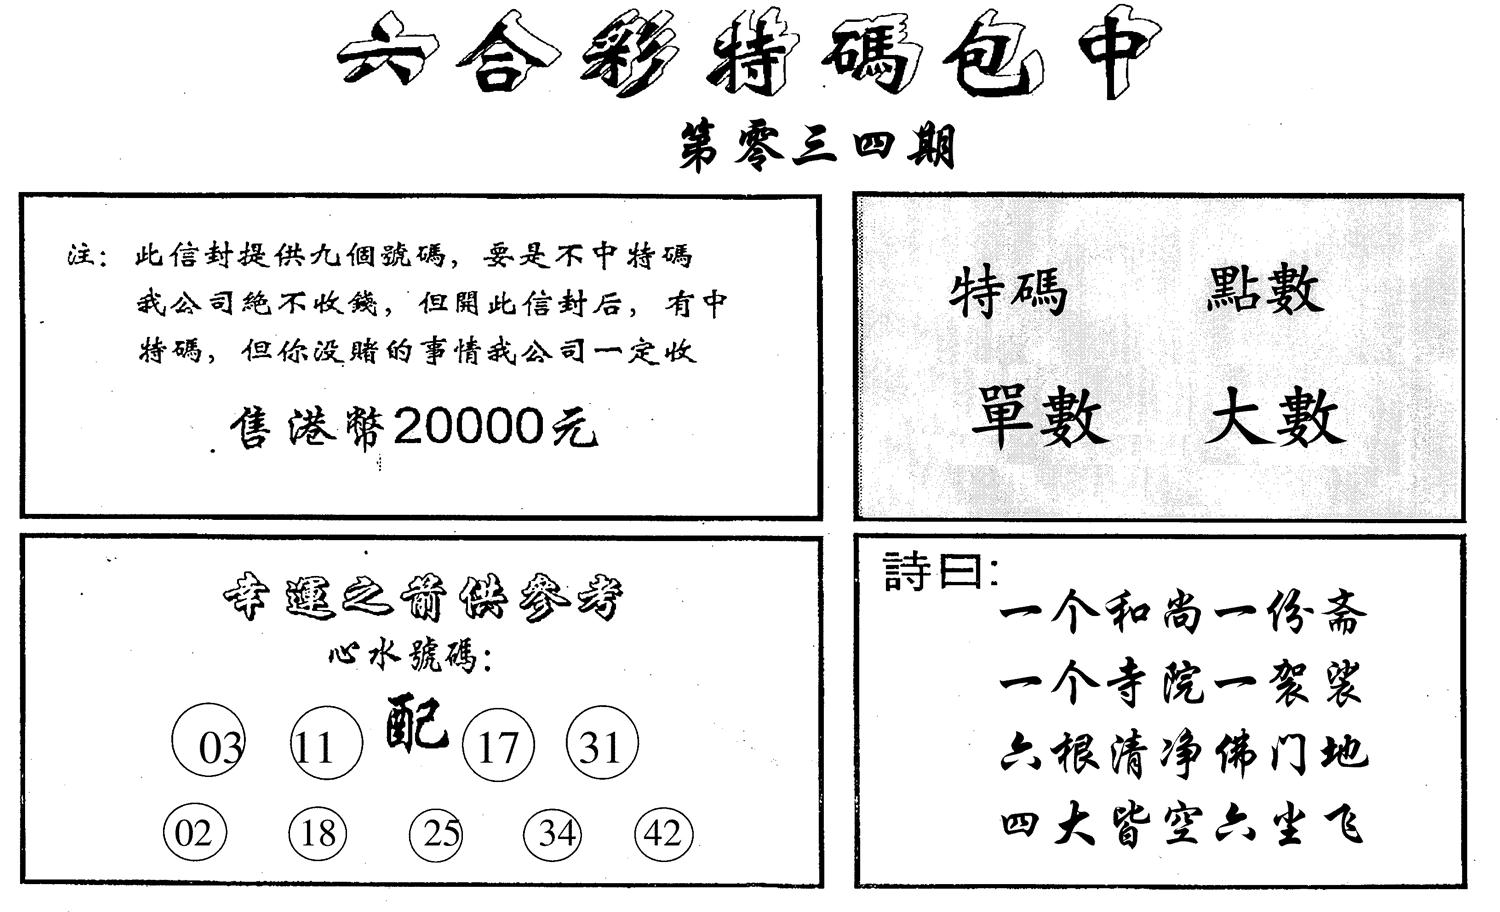 六合彩特碼包中
第零三四期
注：此信封提供九個號碼，要是不中特碼
我公司絕不收錢，但開此信封后，有中
特碼，但你没賭的事情我公司一定收
售港幣20000元
特碼 點數
單數 大數
幸運之前供參考
心水號碼：
03 11 配 17 31
02 18 25 34 42
詩曰：
一个和尚一份斋
一个寺院一袈裟
六根清净佛门地
四大皆空六坐飞